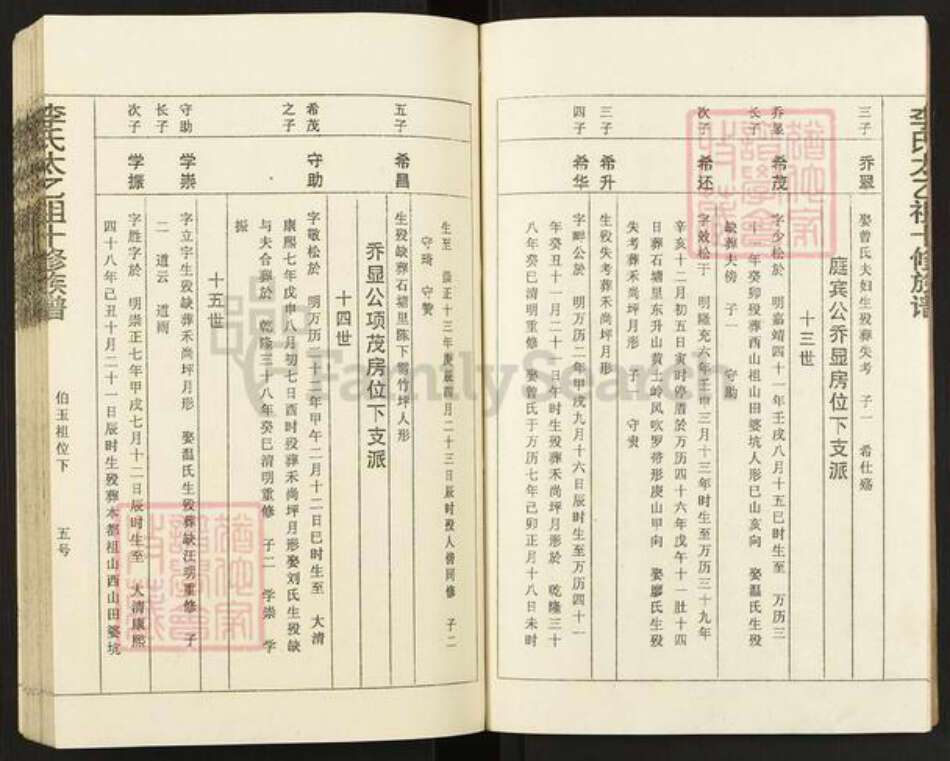 李氏太乙祖十修族谱
三子 乔翠 娶曾氏夫妇生殁葬失考 子一 希仕殇
庭宾公乔显房位下支派
十三世
乔显长子 希茂 字少松於 明嘉靖四十一年壬戌八月十五巳时生至 万历三
十一年癸卯殁葬西山祖山田婆坑人形巳山亥向 娶温氏生殁
缺葬夫傍 子一 守助
次子 希还 字效松于 明隆充六年壬申三月十三年时生至万历三十九年
辛亥十二月初五日寅时停眉於万历四十六年戊午十一肚十四
日葬石塘里东升山黄土岭风吹罗带形庚山甲向 娶廖氏生殁
失考葬禾尚坪月形 子一 守贵
三子 希升 生殁失考葬禾尚坪月形
四子 希华 字畔公於 明万历二年甲戌九月十六日辰时生至万历四十一
年癸丑十一月二十一日午时生殁葬禾尚坪月形於 乾隆三十
八年癸巳清明重修 娶曾氏于万历七年己卯正月十八日未时
生至 崇正十三年庚辰四月二十三日辰时殁人傍同修 子二
守琦 守赞
五子 希昌 生殁缺葬石塘里陈下 竹坪人形
乔显公项茂房位下支派
十四世
希茂之子 守助 字敬松於 明万历二十三年甲午二月十二日巳时生至 大清
康熙七年戊申八月初七日酉时殁葬禾尚坪月形娶刘氏生殁缺
与夫合葬於 乾隆三十八年癸巳清明重修 子二 学崇 学
振
十五世
守助长子 学崇 字立宇生殁缺葬禾尚坪月形 娶温氏生殁葬缺汪明重修 子
二 道云 道雨
次子 学振 字胜字於 明崇正七年甲戌七月十二日辰时生至 大清康熙
四十八年己丑十月二十一日辰时生殁葬本都祖山西山田婆坑
李氏太乙祖十修族谱 伯玉祖位下 五号
FamilySearch